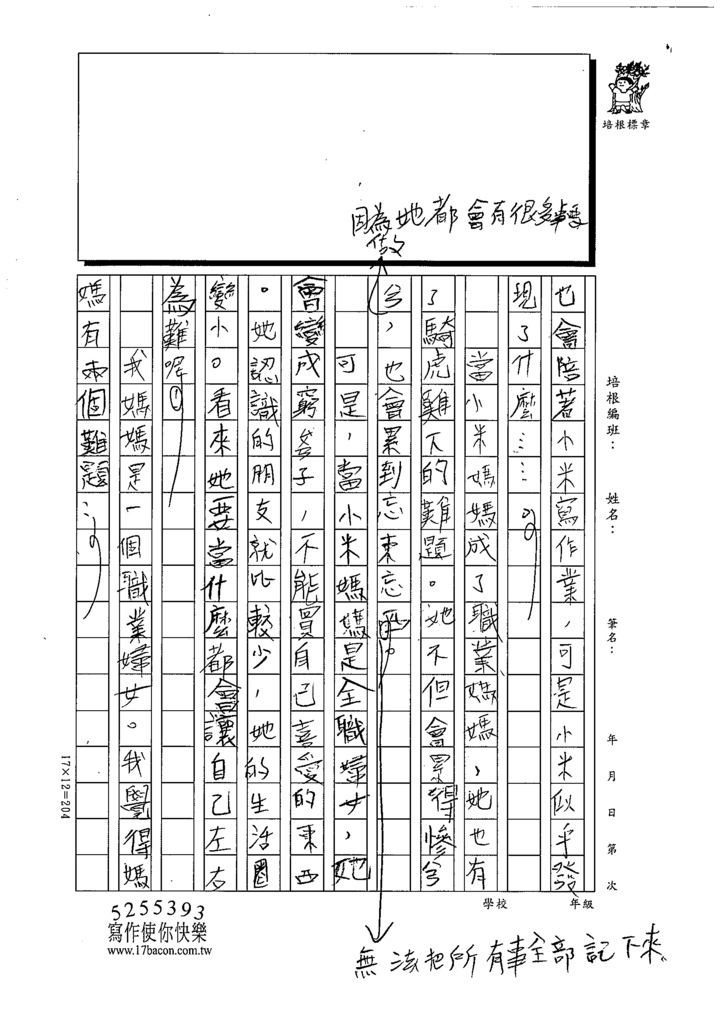 培根標章
因為她都會有很多事要
做
培根編班： 姓名： 筆名： 年 月 日 第 次
也會陪著小米寫作業，可是小米似乎發
現了什麼……。
當小米媽媽成了職業媽媽，她也有
了騎虎難下的難題。她不但會累得慘兮
兮，也會累到忘東忘西。
可是，當小米媽媽是全職婦女，她
會變成窮爸子，不能買自己喜愛的東西
。她認識的朋友就比較少，她的生活圈
變小。看來她要當什麼都會讓自己左右
為難呢。
我媽媽是一個職業婦女。我覺得媽
媽有兩個難題…。
17×12=204
學校 年級
5255393
寫作使你快樂
www.17bacon.com.tw
無法把所有事全部記下來。